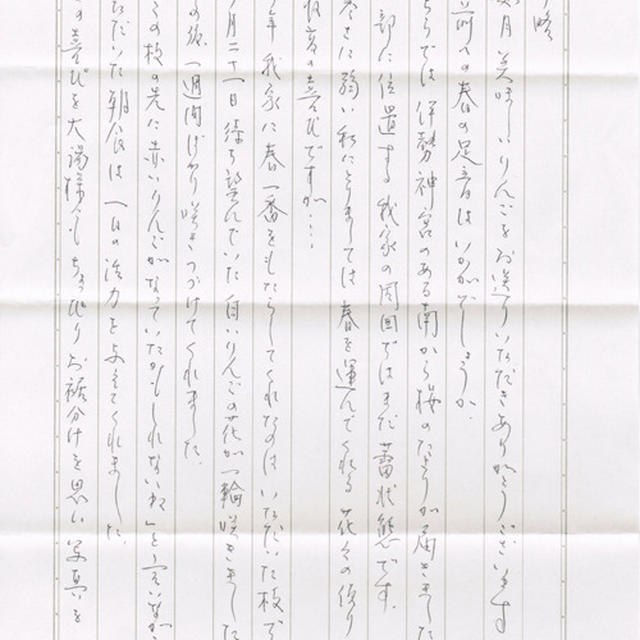 略
月 美味しいりんごをお送りいただきありがとうございます
前への春の足音はいかがでしょうか.
ちらでは伊勢神宮のある南から桜のたよりが届きました
部に位置する我家の周囲ではまだ蕾状態です.
寒さに弱い私にとりましては 春を運んでくれる花々の便り
の喜びですが…
年 我家に春一番をもたらしてくれたのは いただいた枝で
月二十一日 待ち望んでいた白いりんごの花が一輪咲きました
の後、一週間ばかり咲きつづけてくれました.
この枝の先に赤いりんごがなっていたかもしれないね」と言いなが
ただいた朝食は 一日の活力を与えてくれました.
の喜びを大湯様へも ちょっぴりお裾分けを思い 写真を